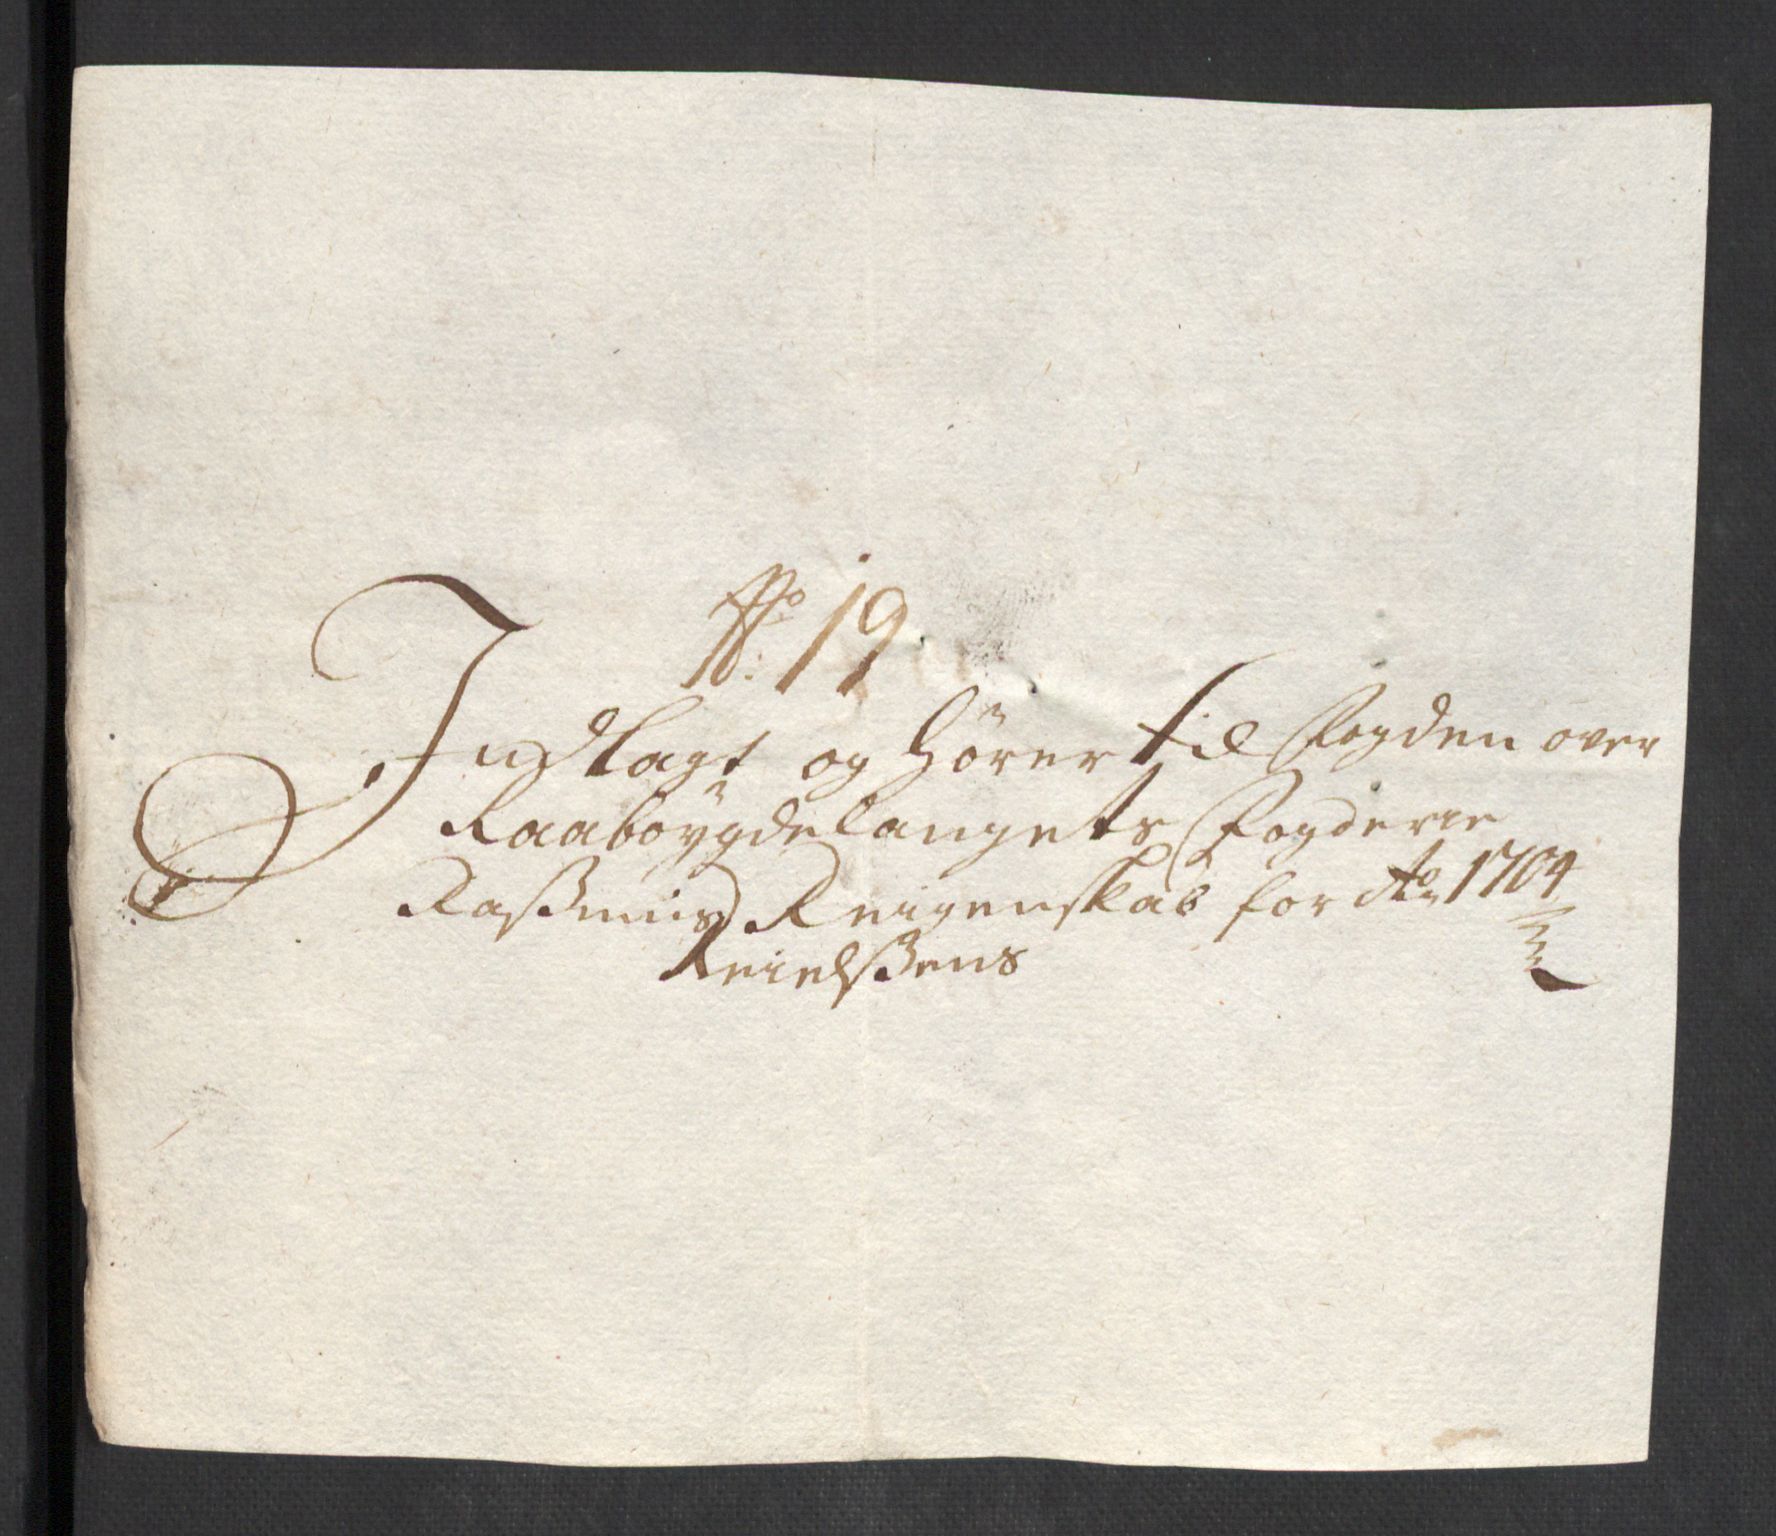 No: 19
Indlagt og hörer til Fogden over
Raaböygdelaugets Fogderie
Raßmus Reigenskab for Ao 1704
Keielßens